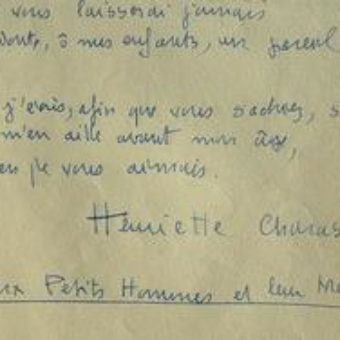 vous laisserai jamais
dont, ô mes enfants, un pareil
j'écris, afin que vous sachiez, s
m'en aille avant mon âge,
en je vous aimais.
Henriette Charas
ux Petits Hommes et leur Mè